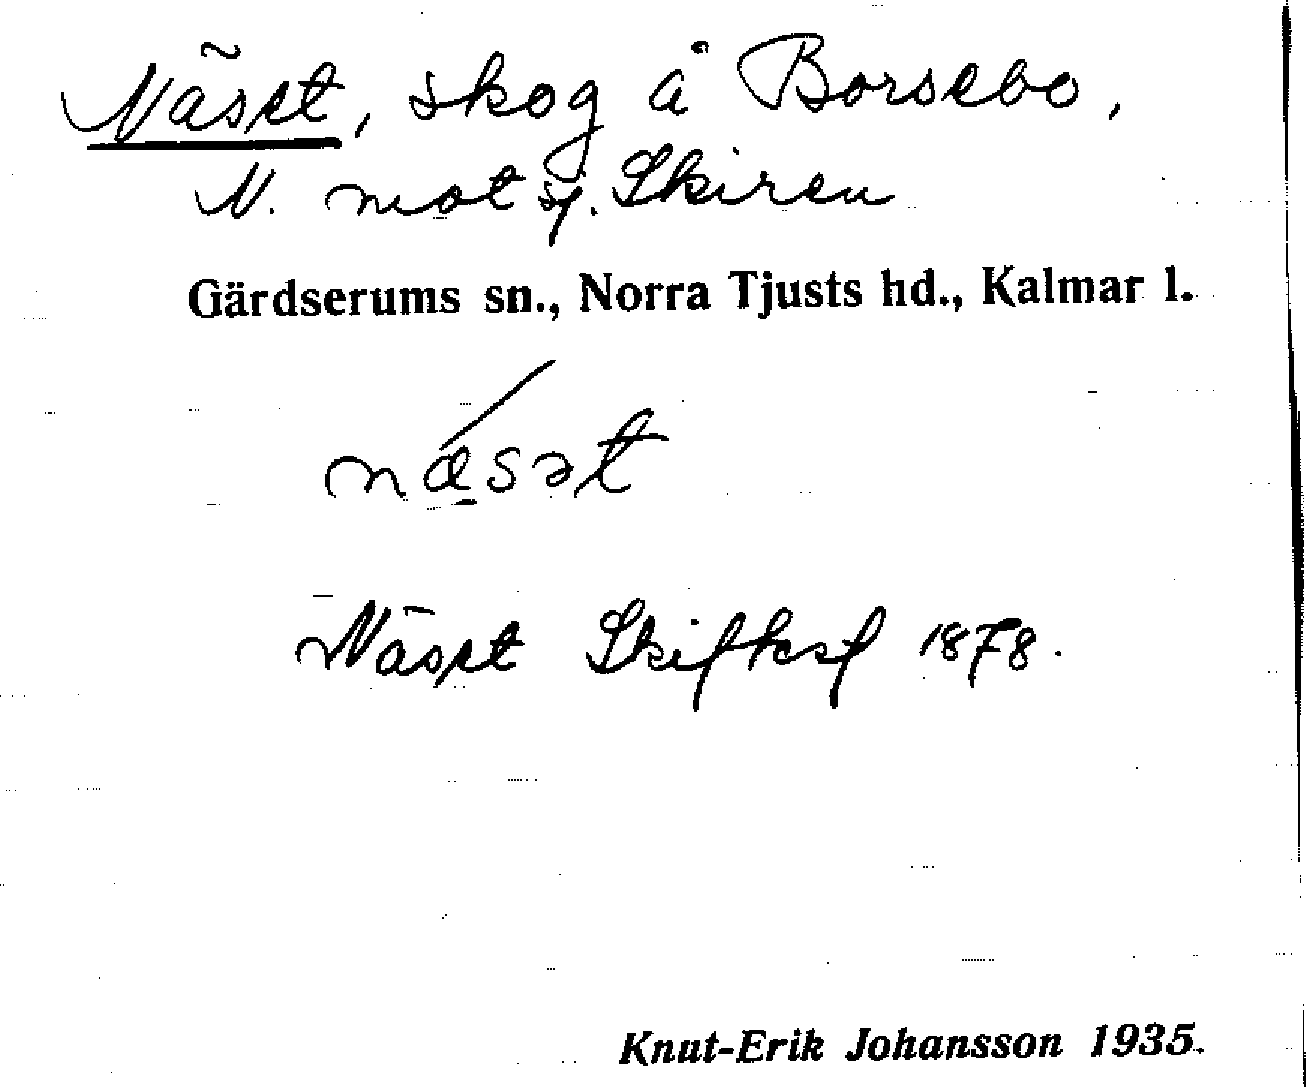 Näset, skog å Borsebo,
N. mot sj. Skiren
Gärdserums sn., Norra Tjusts hd., Kalmar l.
nǽ̲sət
Näset Skifksf 1878.
Knut-Erik Johansson 1935.